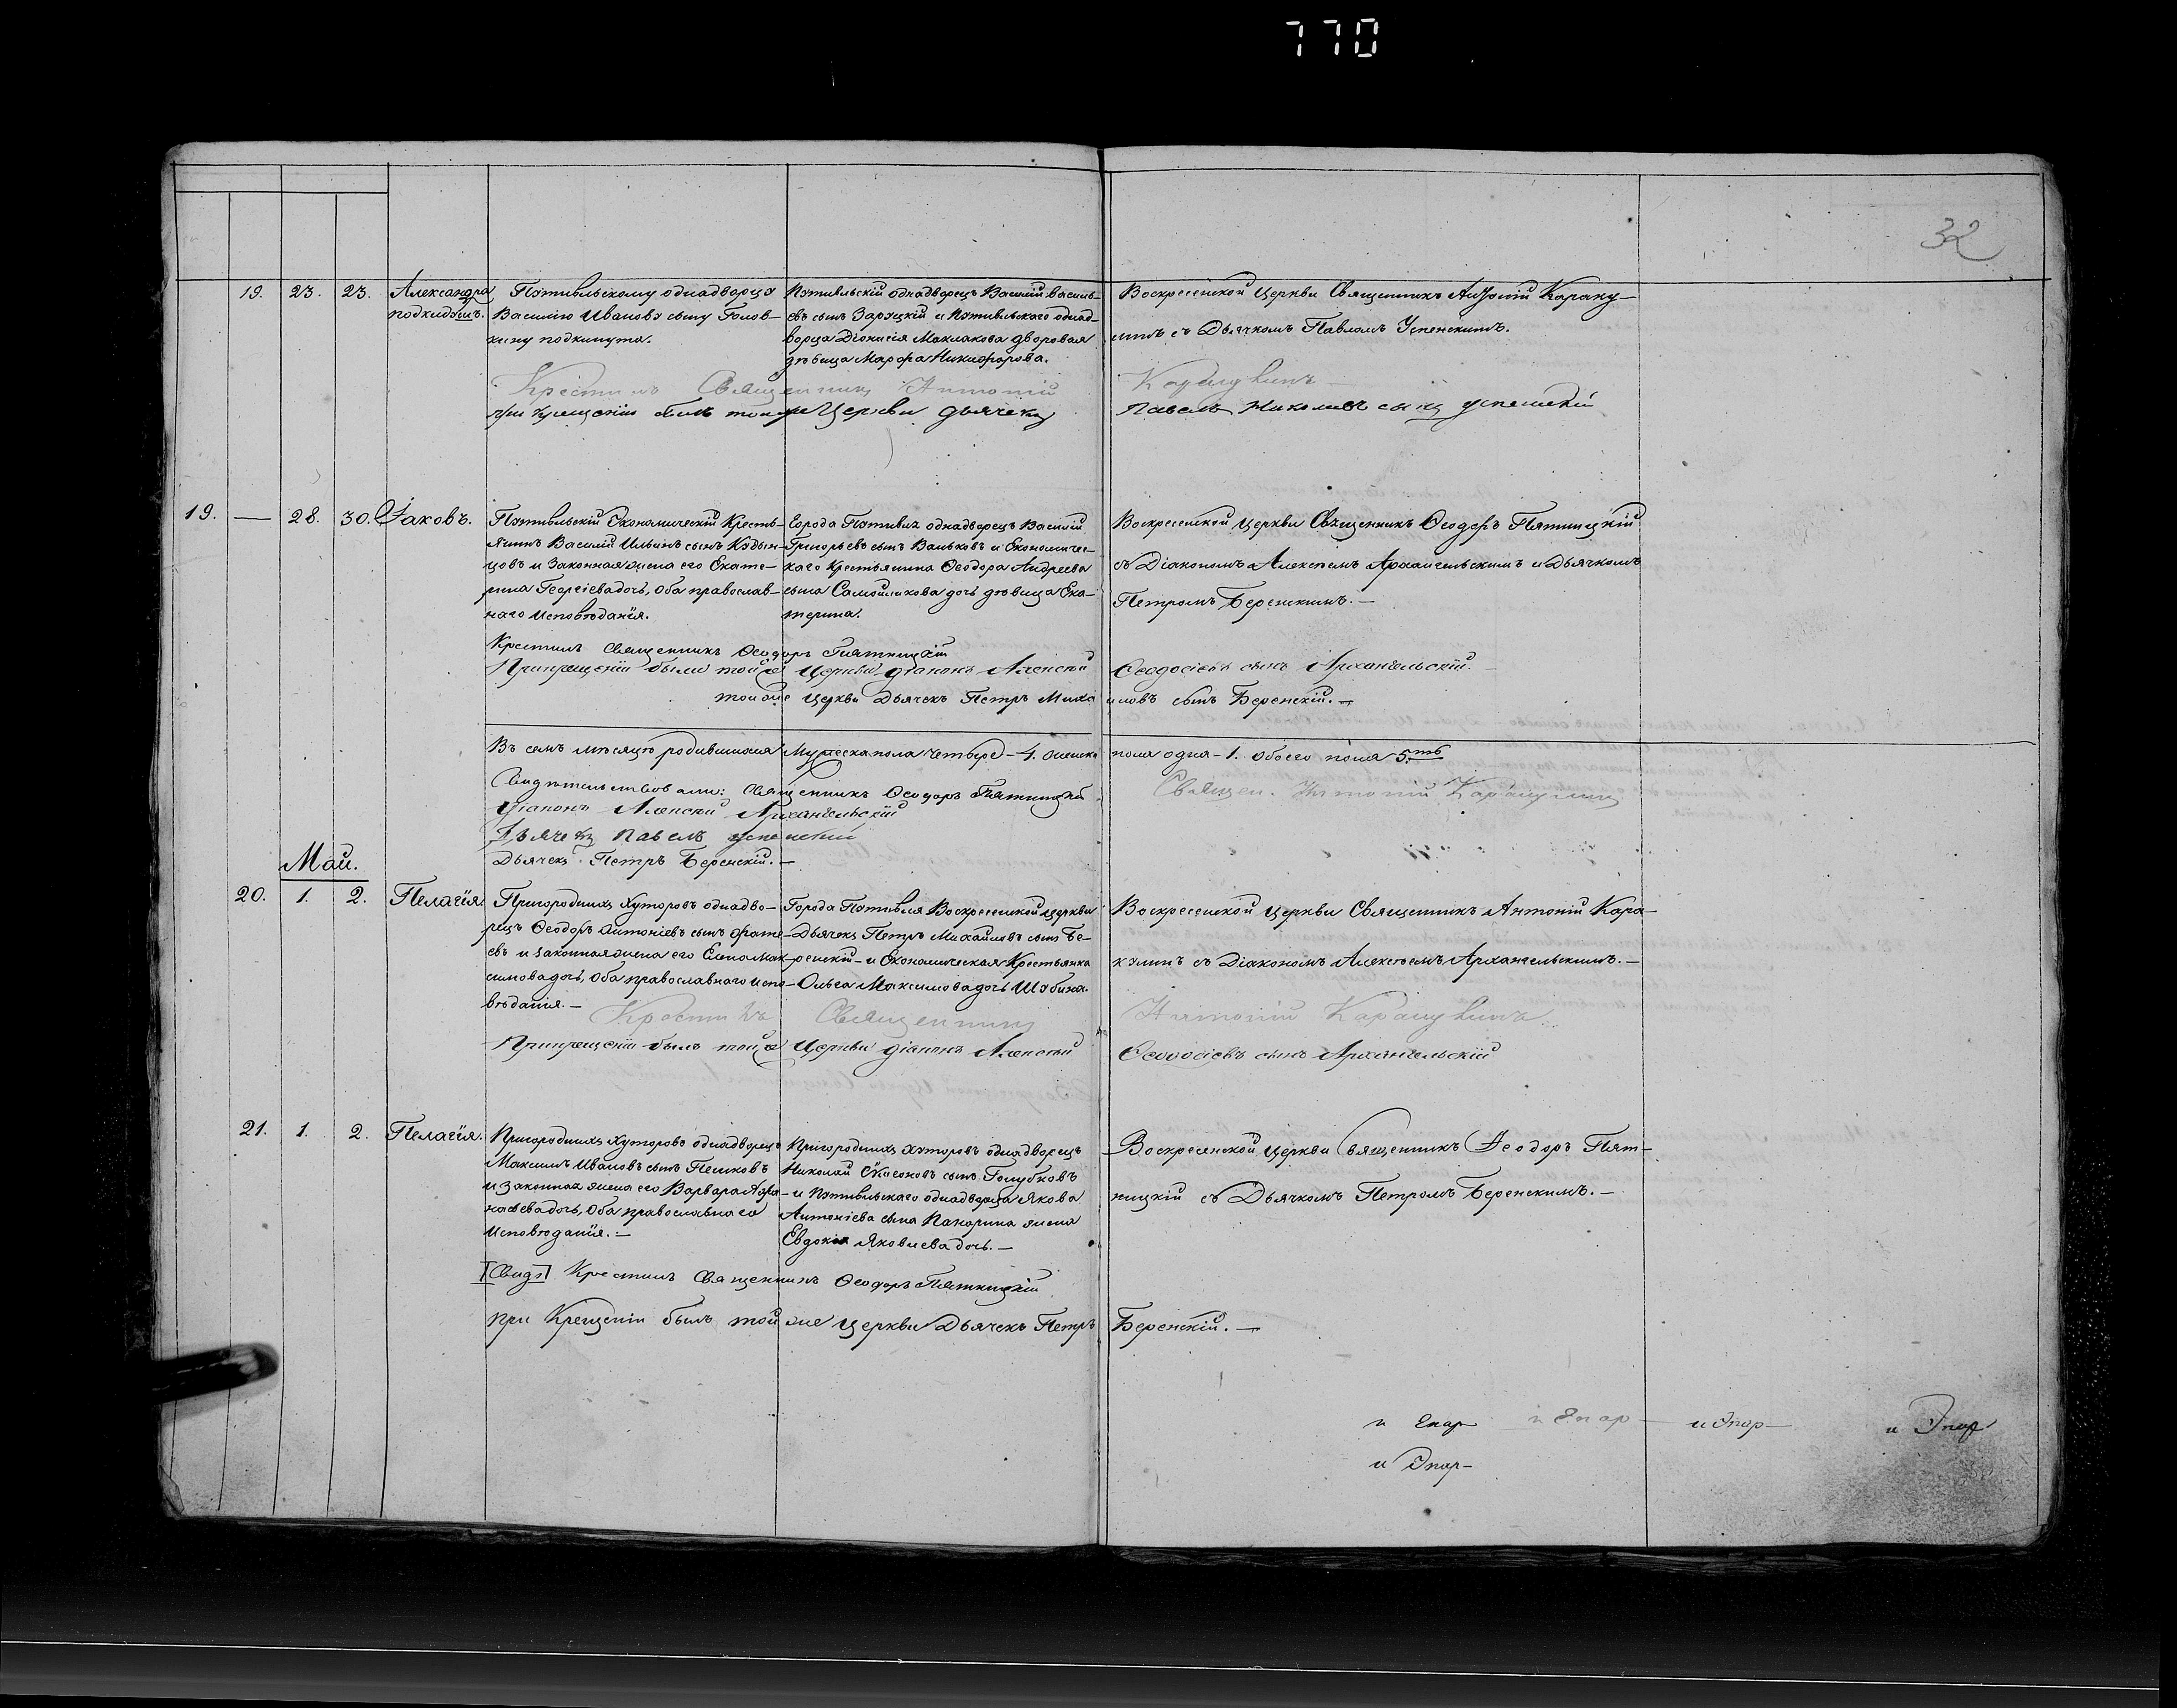 770
32
19. 23. 23. Александра подкидышъ.
Путивльскому однадворцу
Василію Иванову сыну Голов-
кину подкинута.
Путивльскій однадворецъ Василій василь-
евъ сынъ Заруцкій и Путивльскаго однад-
ворца Діонисія Маклакова дворовая
дѣвица Марѳа Никифорова.
Воскресенской Церкви Священникъ Антоній Караку-
линъ съ Дьячкомъ Павломъ Успенскимъ.
Крестилъ Священникъ Антоній
при крещеніи былъ тойже Церкви дьячекъ Павелъ Николаевъ сынъ успенскій
19. — 28. 30. Іаковъ.
Путивльскій Экономическій Кресть-
янинъ Василій Ильинъ сынъ
и Законная жена его Екате-
рина Георгіева дочь, Оба православ-
наго Исповѣданія.
Города Путивля однадворецъ Василій
Григорьевъ сынъ Вальковъ и Економичес-
каго Крестьянина Ѳеодора Андреева
сына Самойликова дочь дѣвица Ека-
терина.
Воскресенской Церкви Священникъ Ѳеодоръ Пятницкій
съ Діакономъ Алексѣемъ Архангельскимъ и Дьячкомъ
Петромъ Беренскимъ. —
Крестилъ Священникъ Ѳеодоръ Пятницкій
При крещеніи были тойже Церкви діаконъ Алексѣй Ѳеодосіевъ сынъ Архангельскій. —
той же Церкви Дьячекъ Петръ Миха иловъ сынъ Беренскій. —
Въ семъ мѣсяцѣ родившихся Мужеска пола четыре — 4. женска пола одна — 1. Обоего пола 5.ть
Свидѣтельствовали: Священникъ Ѳеодоръ Пятницкій
Священ. Антоній Каракулинъ
Діаконъ Алексѣй Архангельскій
Дьячекъ Павелъ успенскій
Дьячекъ Петръ Беренскій. —
Май.
20. 1. 2. Пелагія.
Пригородныхъ Хуторовъ однадво-
рецъ Ѳеодоръ Антоніевъ сынъ
и законная жена его Елена Мак-
симова дочь, Оба православнаго испо-
вѣданія. —
Города Путивля Воскресенской церкви
Дьячекъ Петръ Михайловъ сынъ Бе-
ренскій — и Экономическая Крестьянка
Ольга Максимова дочь Шубина.
Воскресенской Церкви Священникъ Антоній Кара-
кулинъ съ Діакономъ Алексѣемъ Архангельскимъ. —
Крестилъ Священникъ Антоній Каракулинъ
При крещеніи былъ тойже Церкви діаконъ Алексѣй Ѳеодосіевъ сынъ Архангельскій
21. 1. 2. Пелагія.
Пригородныхъ Хуторовъ однадворецъ
Максимъ Ивановъ сынъ Пешковъ
и законная жена его Варвара Аѳа-
насьева дочь, Оба православнаго
Исповѣданія. —
Пригородныхъ Хуторовъ однадворецъ
Николай сынъ Голубковъ
и Путивльскаго однадворца Якова
Антоніева сына жена
Евдокія Яковлева дочь. —
Воскресенской Церкви Священникъ Ѳеодоръ Пят-
ницкій съ Дьячкомъ Петромъ Беренскимъ. —
[Свидѣ] Крестилъ Священникъ Ѳеодоръ Пятницкій
при Крещеніи былъ той же Церкви Дьячекъ Петръ Беренскій. —